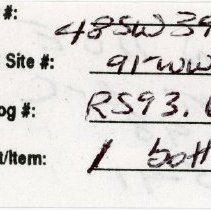 #:
485W39
Site #: 91-WW
og #: RS93.
t/Item: 1 bott